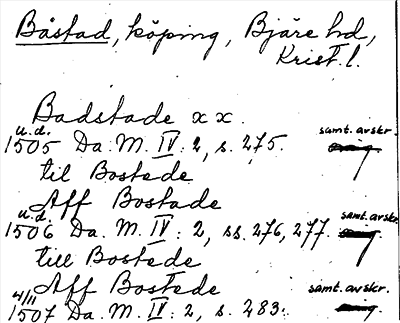 Båstad, köping, Bjäre hd,
Krist. l.
Badstade xx.
u.d. samt. avskr.
1505 Da. M. IV: 2, s. 275.
til Bostede
Aff Bostade
u.d. samt. avskr.
1506 Da. M. IV: 2, ss. 276, 277.
till Bostede
Aff Bostede
4/11 samt. avskr.
1507 Da. M. IV: 2, s. 283.